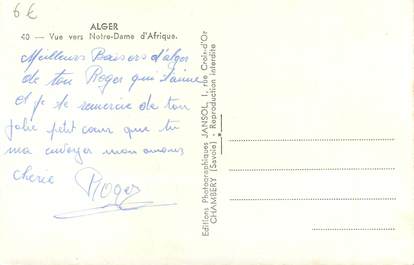 6€
ALGER
40 — Vue vers Notre-Dame d'Afrique.
Meilleurs Baisers d'alger
de ton Roger qui t'aime
et je te remercie de ton
jolie petit cœur que tu
ma envoyer mon amour
cherie Roger
Editions Photographiques JANSOL, 1, rue Croix-d'Or
CHAMBERY (Savoie) - Reproduction interdite